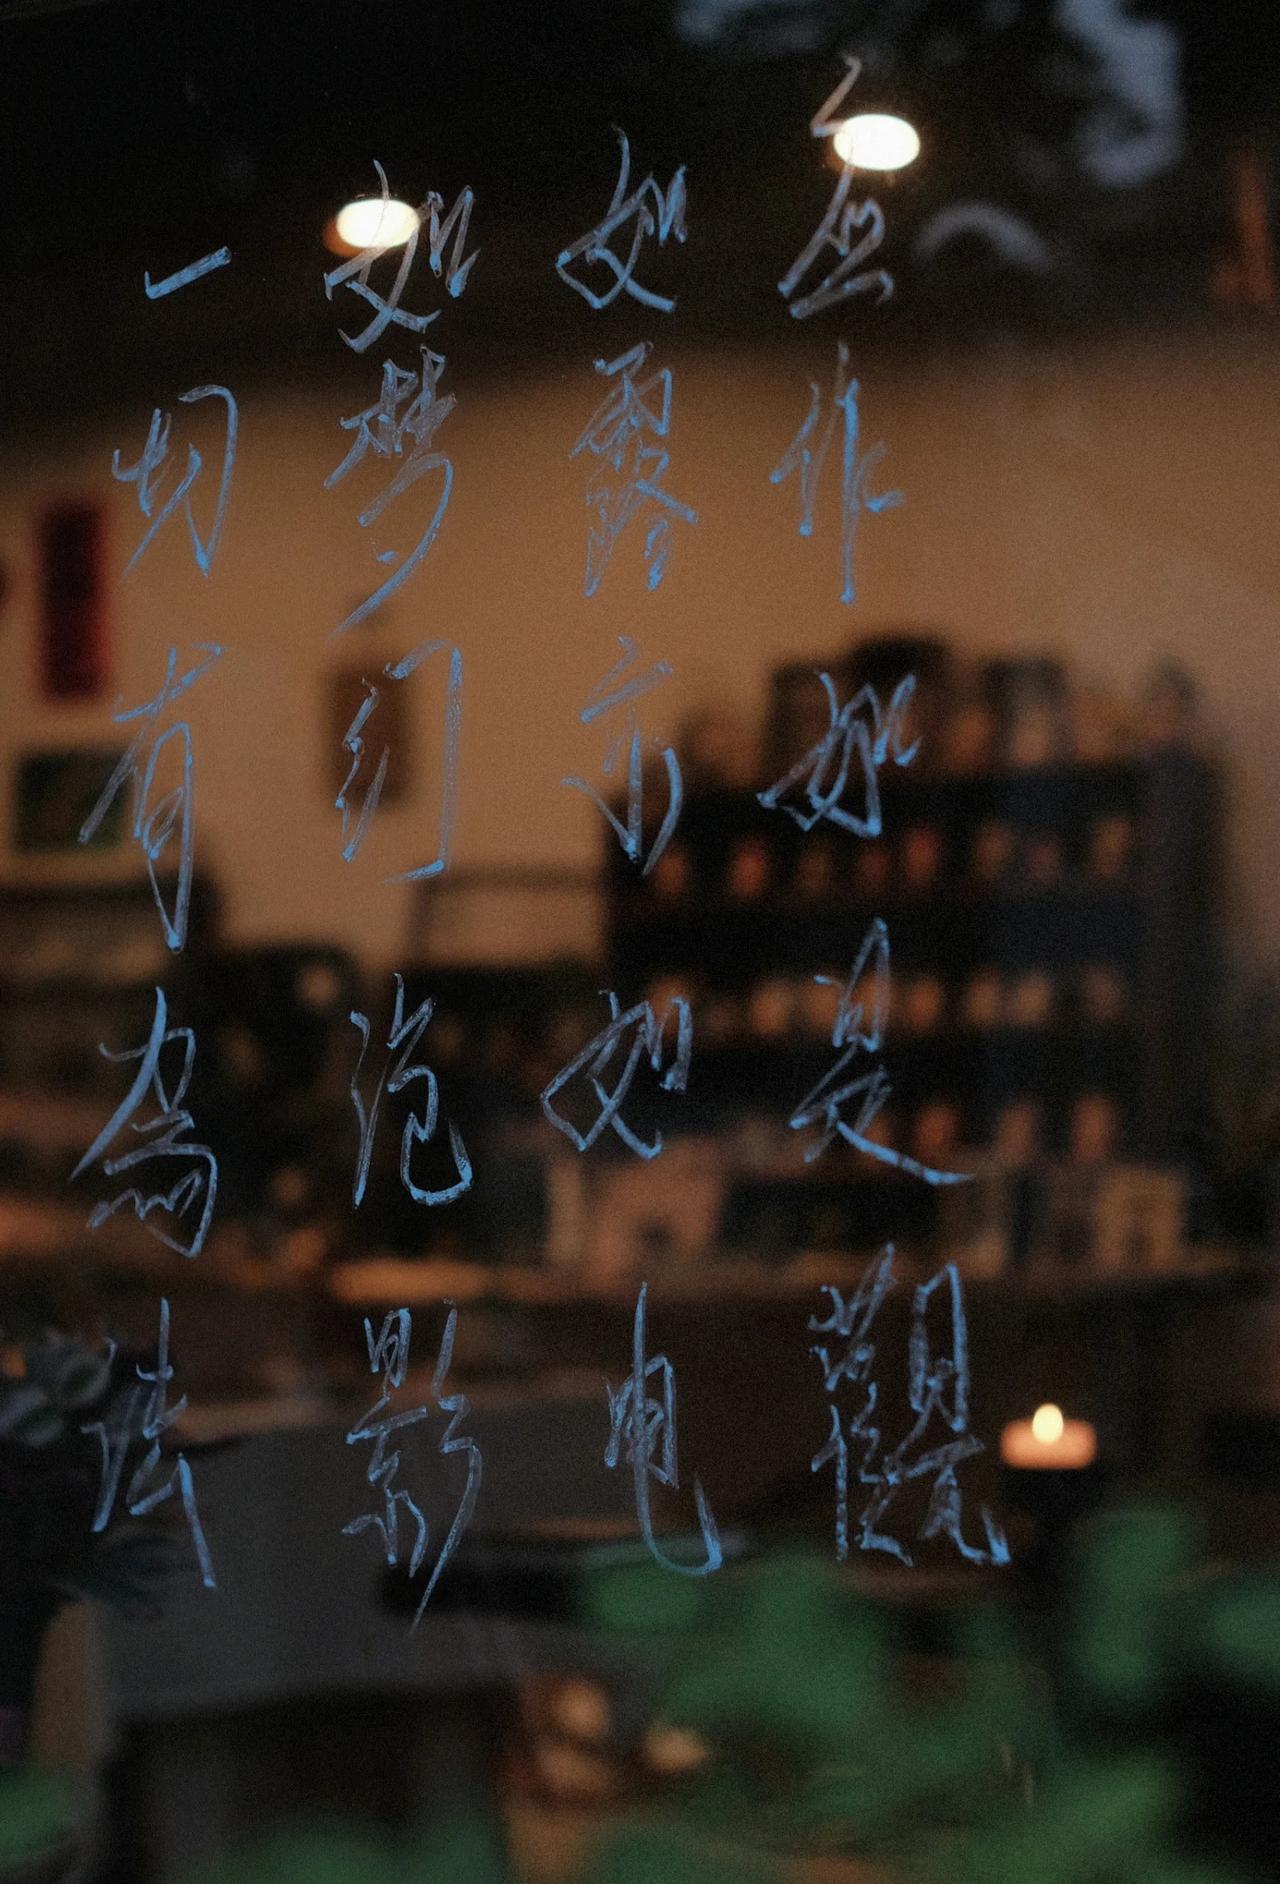 一切有為法
如梦幻泡影
如露亦如电
应作如是觀